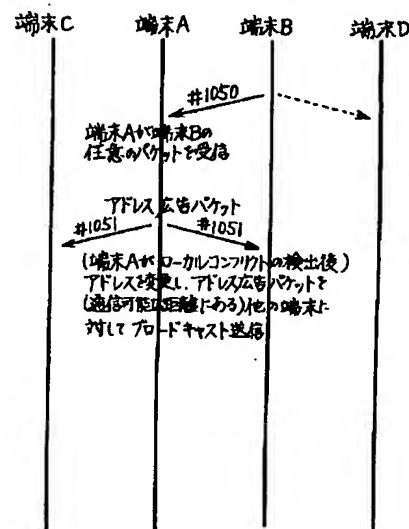 端末C 端末A 端末B 端末D
#1050
端末Aが端末Bの
任意のパケットを受信
アドレス広告パケット
#1051 #1051
(端末Aがローカルコンフリクトの検出後)
アドレスを変更し、アドレス広告パケットを
(通信可能な距離にある)他の端末に
対してブロードキャスト送信